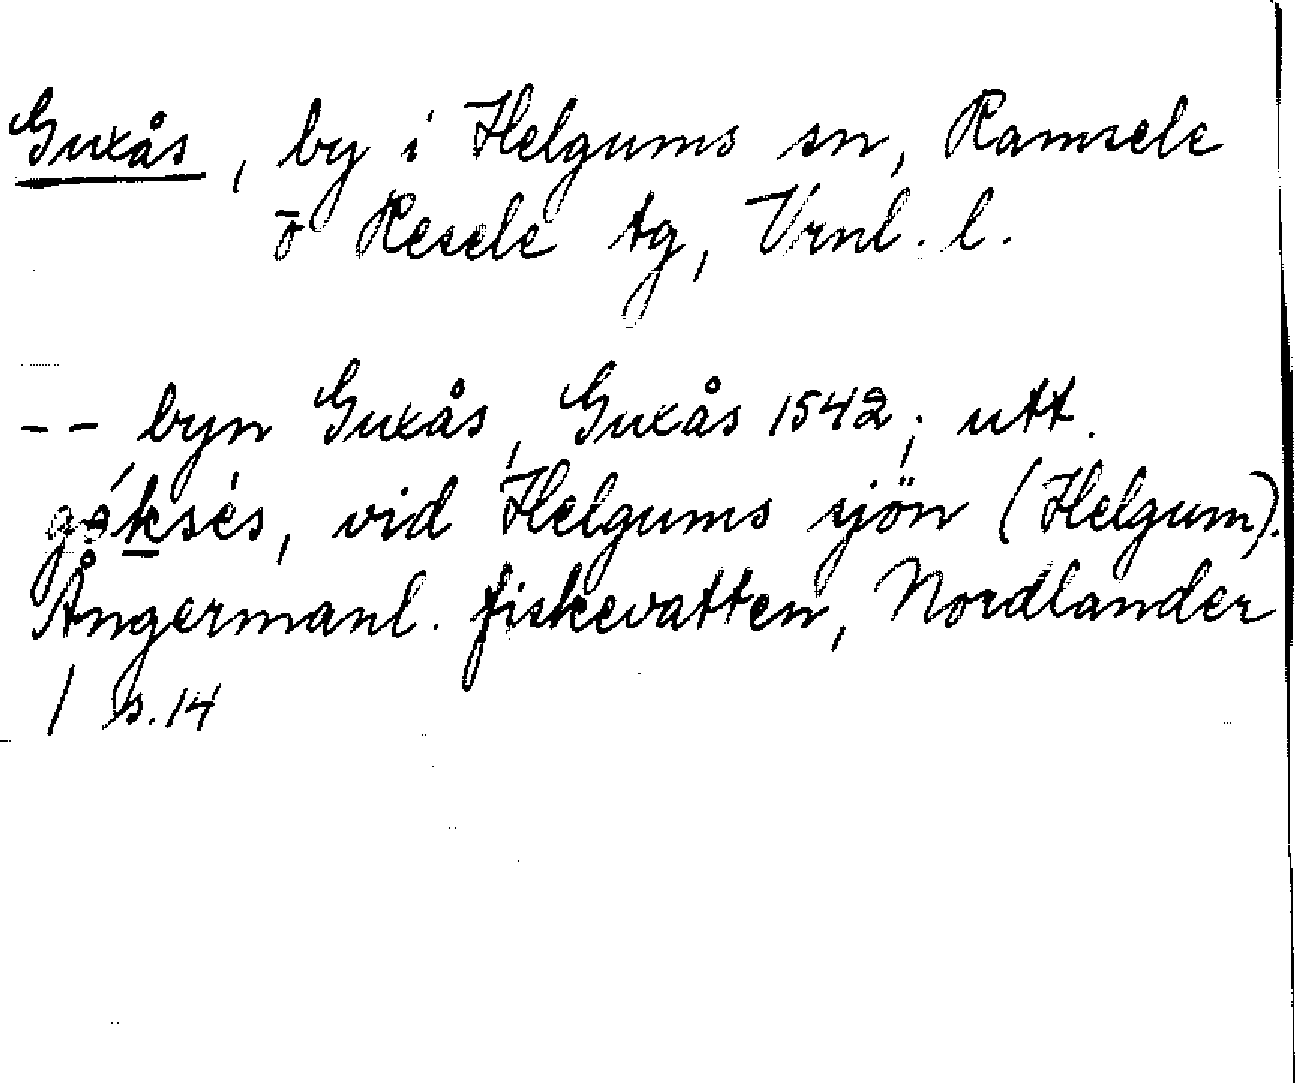 Guxås, by i Helgums sn, Ramsele
o Resele tg, Vrnl. l.
-- byn Guxås, Guxås 1542; utt.
vid Helgums sjön (Helgum).
Ångermanl. fiskevatten, Nordlander
/ s. 14